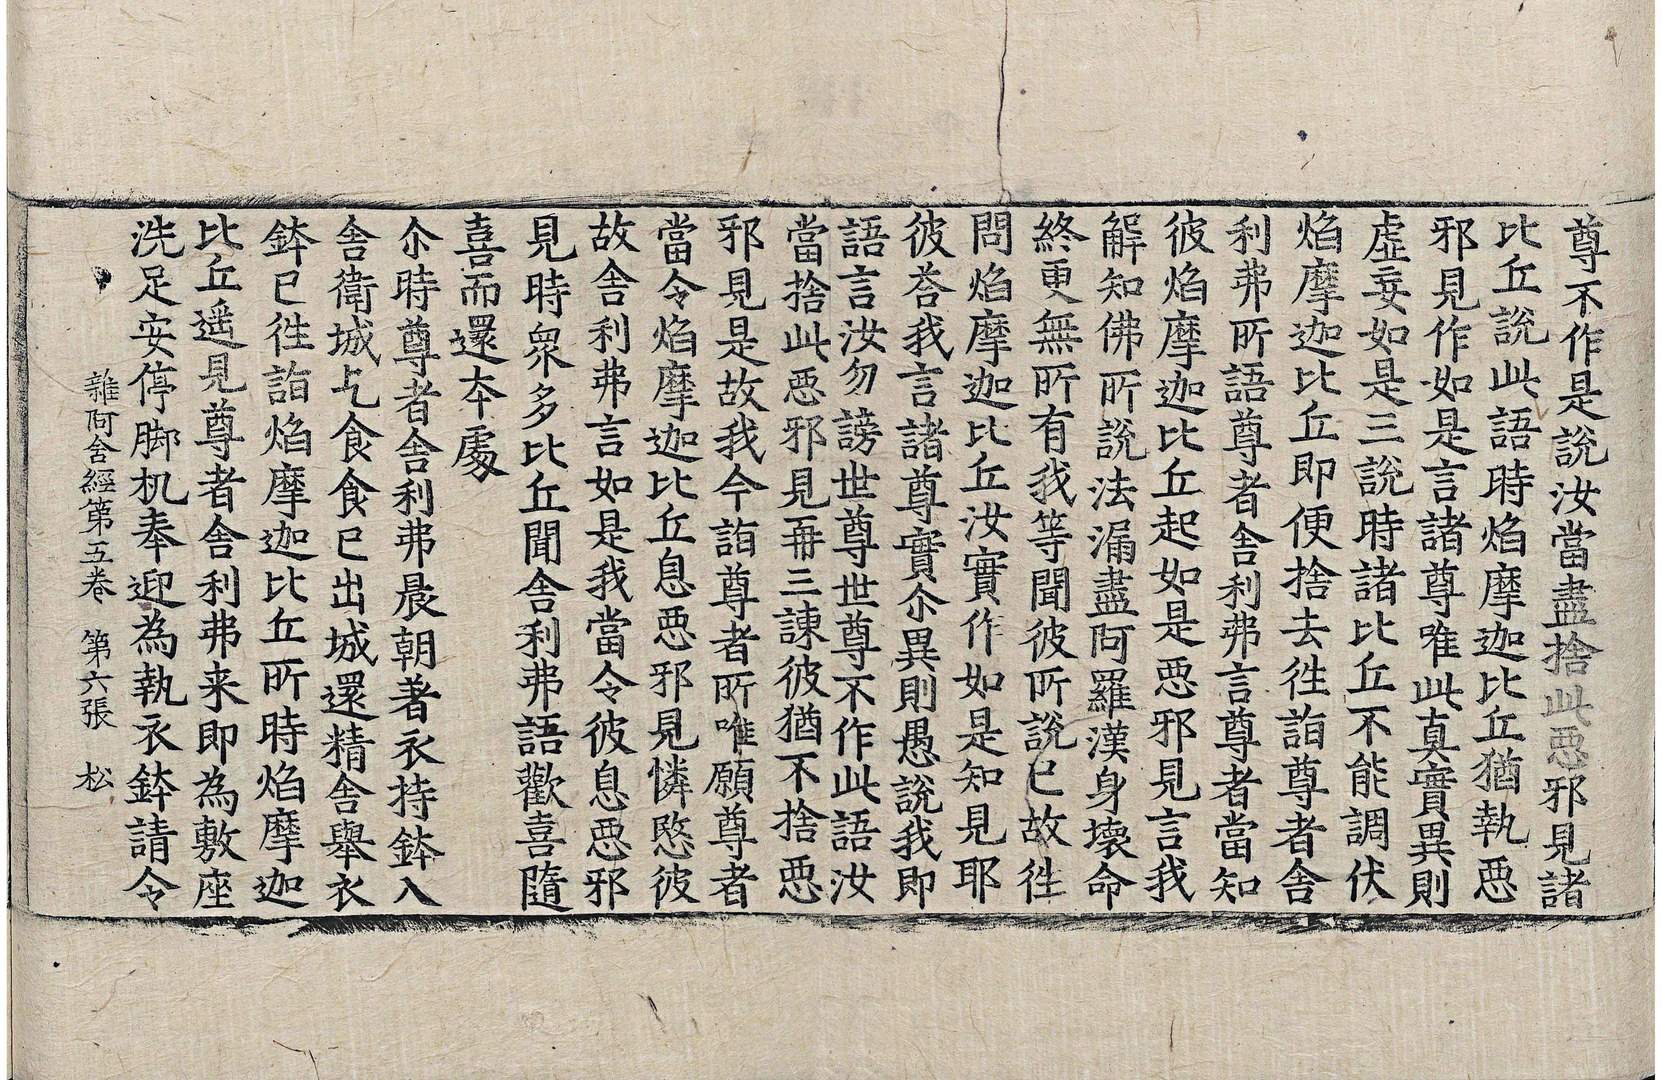 尊不作是說汝當盡捨此惡邪見諸
比丘說此語時焰摩迦比丘猶執惡
邪見作如是言諸尊唯此真實異則
虛妄如是三說時諸比丘不能調伏
焰摩迦比丘即便捨去往詣尊者舍
利弗所語尊者舍利弗言尊者當知
彼焰摩迦比丘起如是惡邪見言我
解知佛所說法漏盡阿羅漢身壞命
終更無所有我等聞彼所說已故往
問焰摩迦比丘汝實作如是知見耶
彼荅我言諸尊實尒異則愚說我即
語言汝勿謗世尊世尊不作此語汝
當捨此惡邪見再三諫彼猶不捨惡
邪見是故我今詣尊者所唯願尊者
當令焰摩迦比丘息惡邪見憐愍彼
故舍利弗言如是我當令彼息惡邪
見時衆多比丘聞舍利弗語歡喜隨
喜而還本處
尒時尊者舍利弗晨朝著衣持鉢入
舍衛城乞食食已出城還精舍舉衣
鉢已往詣焰摩迦比丘所時焰摩迦
比丘遥見尊者舍利弗来即為敷座
洗足安停脚机奉迎為執衣鉢請令
雜阿含經第五卷 第六張 松